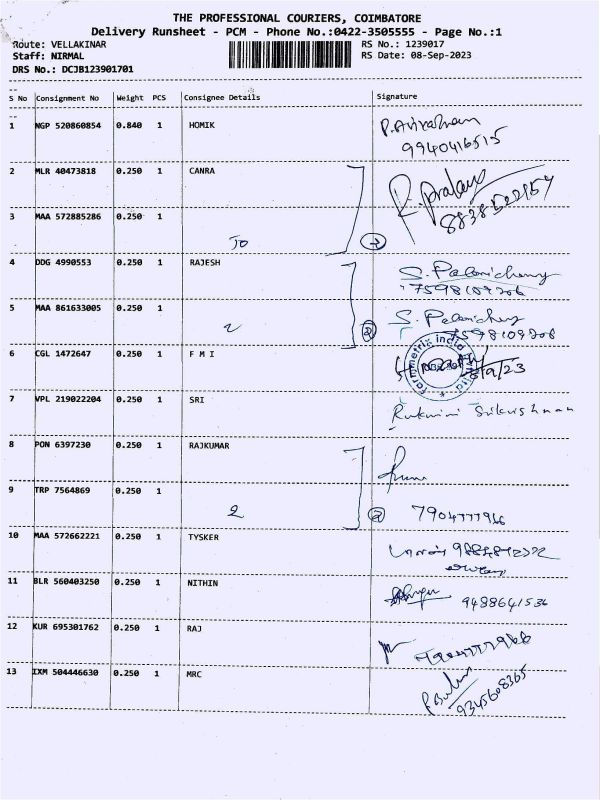 THE PROFESSIONAL COURIERS, COIMBATORE
Delivery Runsheet - PCM - Phone No.:0422-3505555 - Page No.:1
Route: VELLAKINAR
RS No.: 1239017
Staff: NIRMAL
RS Date: 08-Sep-2023
DRS No.: DCJB123901701
S No Consignment No Weight PCS Consignee Details Signature
1 NGP 520860854 0.840 1 HOMIK
9940416515
2 MLR 40473818 0.250 1 CANRA
3 MAA 572885286 0.250 1
4 DDG 4990553 0.250 1 RAJESH S. Palanichamy
7598109206
5 MAA 861633005 0.250 1 S. Palanichamy
7598109206
6 CGL 1472647 0.250 1 F M I
7 VPL 219022204 0.250 1 SRI
Rukmini Srikrishnan
8 PON 6397230 0.250 1 RAJKUMAR
9 TRP 7564869 0.250 1
2 7904777966
10 MAA 572662221 0.250 1 TYSKER
11 BLR 560403250 0.250 1 NITHIN
9488641536
12 KUR 695301762 0.250 1 RAJ
13 IXM 504446630 0.250 1 MRC
9345608365